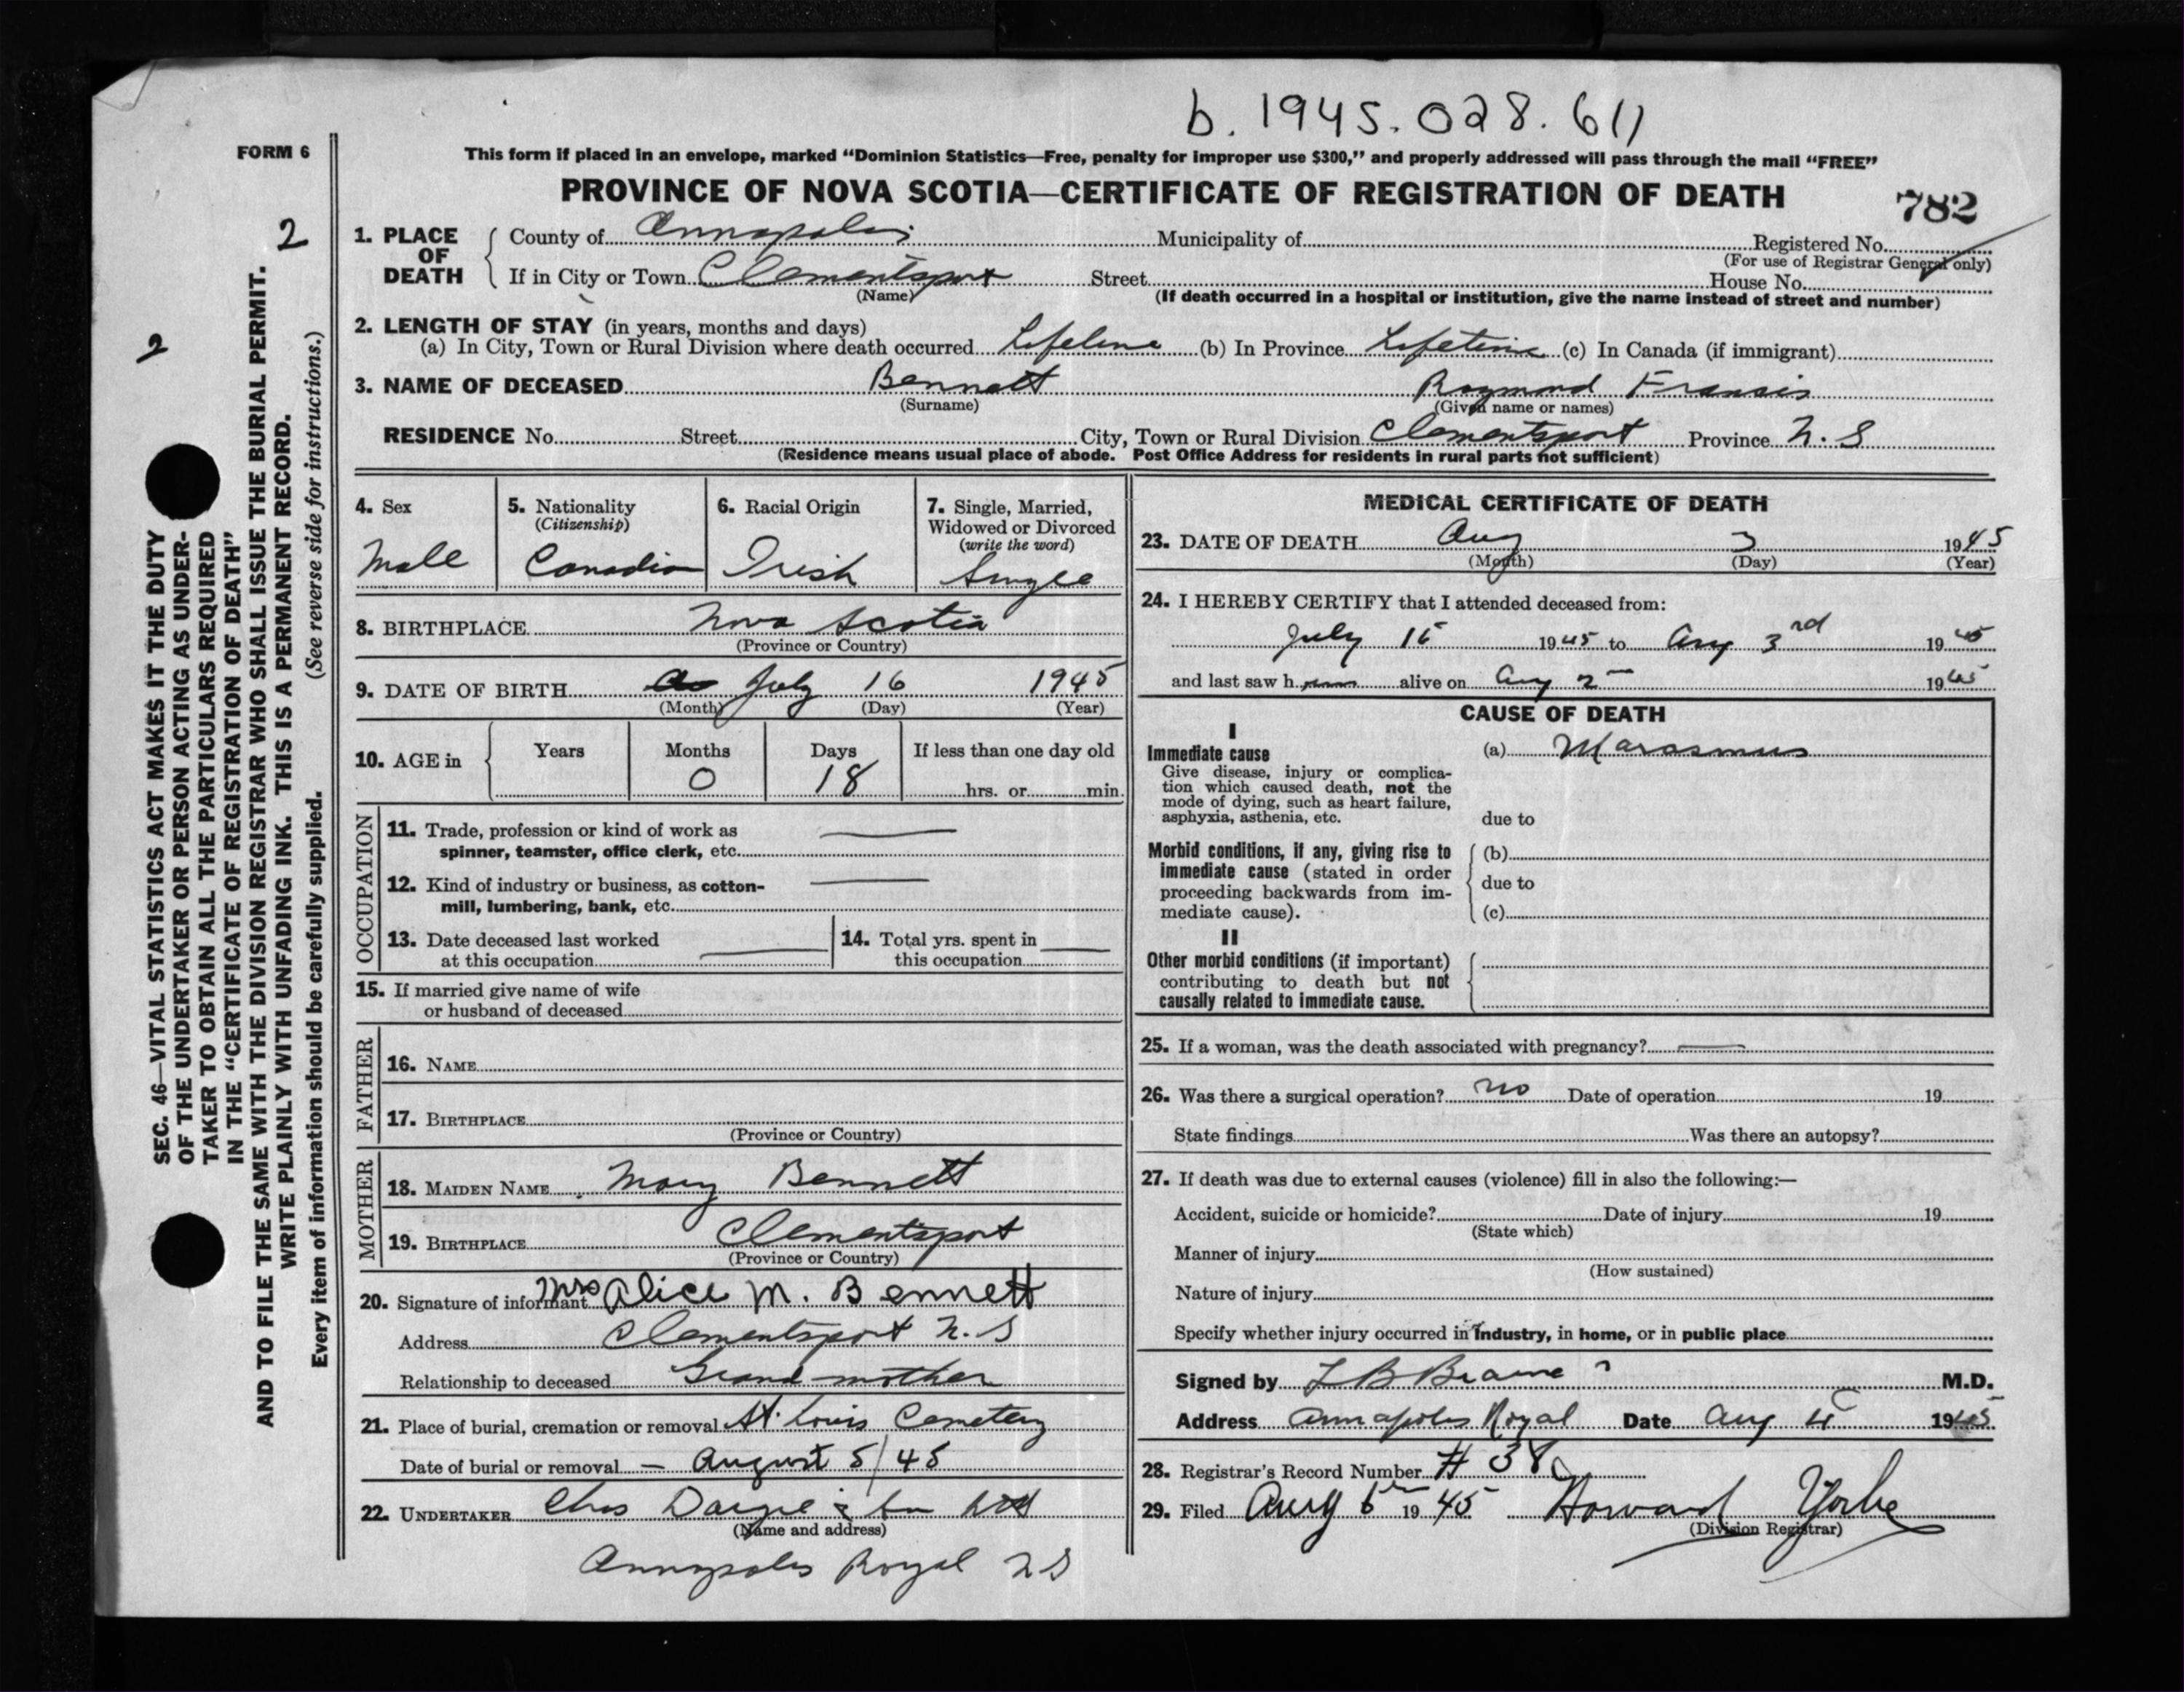 b. 1945. 028. 611
FORM 6
This form if placed in an envelope, marked “Dominion Statistics—Free, penalty for improper use $300,” and properly addressed will pass through the mail “FREE”
PROVINCE OF NOVA SCOTIA—CERTIFICATE OF REGISTRATION OF DEATH
782
2
2
SEC. 46—VITAL STATISTICS ACT MAKES IT THE DUTY
OF THE UNDERTAKER OR PERSON ACTING AS UNDER-
TAKER TO OBTAIN ALL THE PARTICULARS REQUIRED
IN THE “CERTIFICATE OF REGISTRATION OF DEATH”
AND TO FILE THE SAME WITH THE DIVISION REGISTRAR WHO SHALL ISSUE THE BURIAL PERMIT.
WRITE PLAINLY WITH UNFADING INK. THIS IS A PERMANENT RECORD.
Every item of information should be carefully supplied. (See reverse side for instructions.)
1. PLACE OF DEATH County of Annapolis Municipality of Registered No.
(For use of Registrar General only)
If in City or Town Clementsport Street House No.
(Name) (If death occurred in a hospital or institution, give the name instead of street and number)
2. LENGTH OF STAY (in years, months and days)
(a) In City, Town or Rural Division where death occurred Lifetime (b) In Province Lifetime (c) In Canada (if immigrant)
3. NAME OF DECEASED Bennett Raymond Francis
(Surname) (Given name or names)
RESIDENCE No. Street City, Town or Rural Division Clementsport Province N. S
(Residence means usual place of abode. Post Office Address for residents in rural parts not sufficient)
4. Sex
Male
5. Nationality
(Citizenship)
Canadian
6. Racial Origin
Irish
7. Single, Married,
Widowed or Divorced
(write the word)
Single
8. BIRTHPLACE Nova Scotia
(Province or Country)
9. DATE OF BIRTH July 16 1945
(Month) (Day) (Year)
10. AGE in Years Months Days If less than one day old
0 18 hrs. or min.
OCCUPATION
11. Trade, profession or kind of work as
spinner, teamster, office clerk, etc.
12. Kind of industry or business, as cotton-
mill, lumbering, bank, etc.
13. Date deceased last worked
at this occupation
14. Total yrs. spent in
this occupation
15. If married give name of wife
or husband of deceased
FATHER
16. NAME
17. BIRTHPLACE
(Province or Country)
MOTHER
18. MAIDEN NAME Mary Bennett
19. BIRTHPLACE Clementsport
(Province or Country)
20. Signature of informant Mrs Alice M. Bennett
Address Clementsport N. S
Relationship to deceased Grand-mother
21. Place of burial, cremation or removal St. Louis Cemetery
Date of burial or removal — August 5/45
22. UNDERTAKER Chas Dargie & Son Ltd
(Name and address)
Annapolis Royal NS
MEDICAL CERTIFICATE OF DEATH
23. DATE OF DEATH Aug 3 1945
(Month) (Day) (Year)
24. I HEREBY CERTIFY that I attended deceased from:
July 16 1945 to Aug 3rd 1945
and last saw h alive on Aug 2 1945
CAUSE OF DEATH
I
Immediate cause
Give disease, injury or complica-
tion which caused death, not the
mode of dying, such as heart failure,
asphyxia, asthenia, etc.
(a) Marasmus
due to
Morbid conditions, if any, giving rise to
immediate cause (stated in order
proceeding backwards from im-
mediate cause).
(b)
due to
(c)
II
Other morbid conditions (if important)
contributing to death but not
causally related to immediate cause.
25. If a woman, was the death associated with pregnancy?
26. Was there a surgical operation? no Date of operation 19
State findings Was there an autopsy?
27. If death was due to external causes (violence) fill in also the following:—
Accident, suicide or homicide? Date of injury 19
(State which)
Manner of injury
(How sustained)
Nature of injury
Specify whether injury occurred in industry, in home, or in public place
Signed by L B Braine M.D.
Address Annapolis Royal Date Aug 4 1945
28. Registrar’s Record Number # 38
29. Filed Aug 6th 1945 Howard Yorke
(Division Registrar)